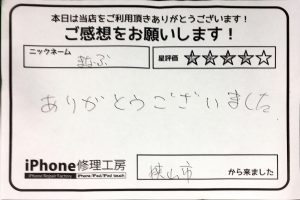 本日は当店をご利用頂きありがとうございます!
ご感想をお願いします!
ニックネーム
星評価
ありがとうございました
iPhone修理工房
iPhone Repair Factory
iPhone/iPad/iPod touch
狭山市
から来ました